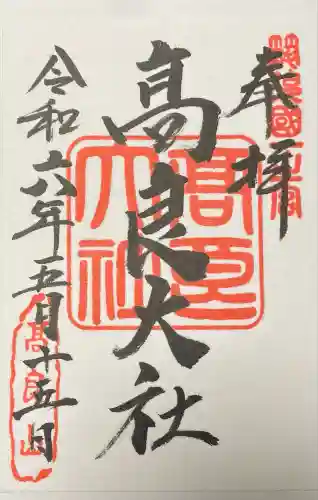 奉拝
高良大社
令和六年五月十五日
高良大社
高良山